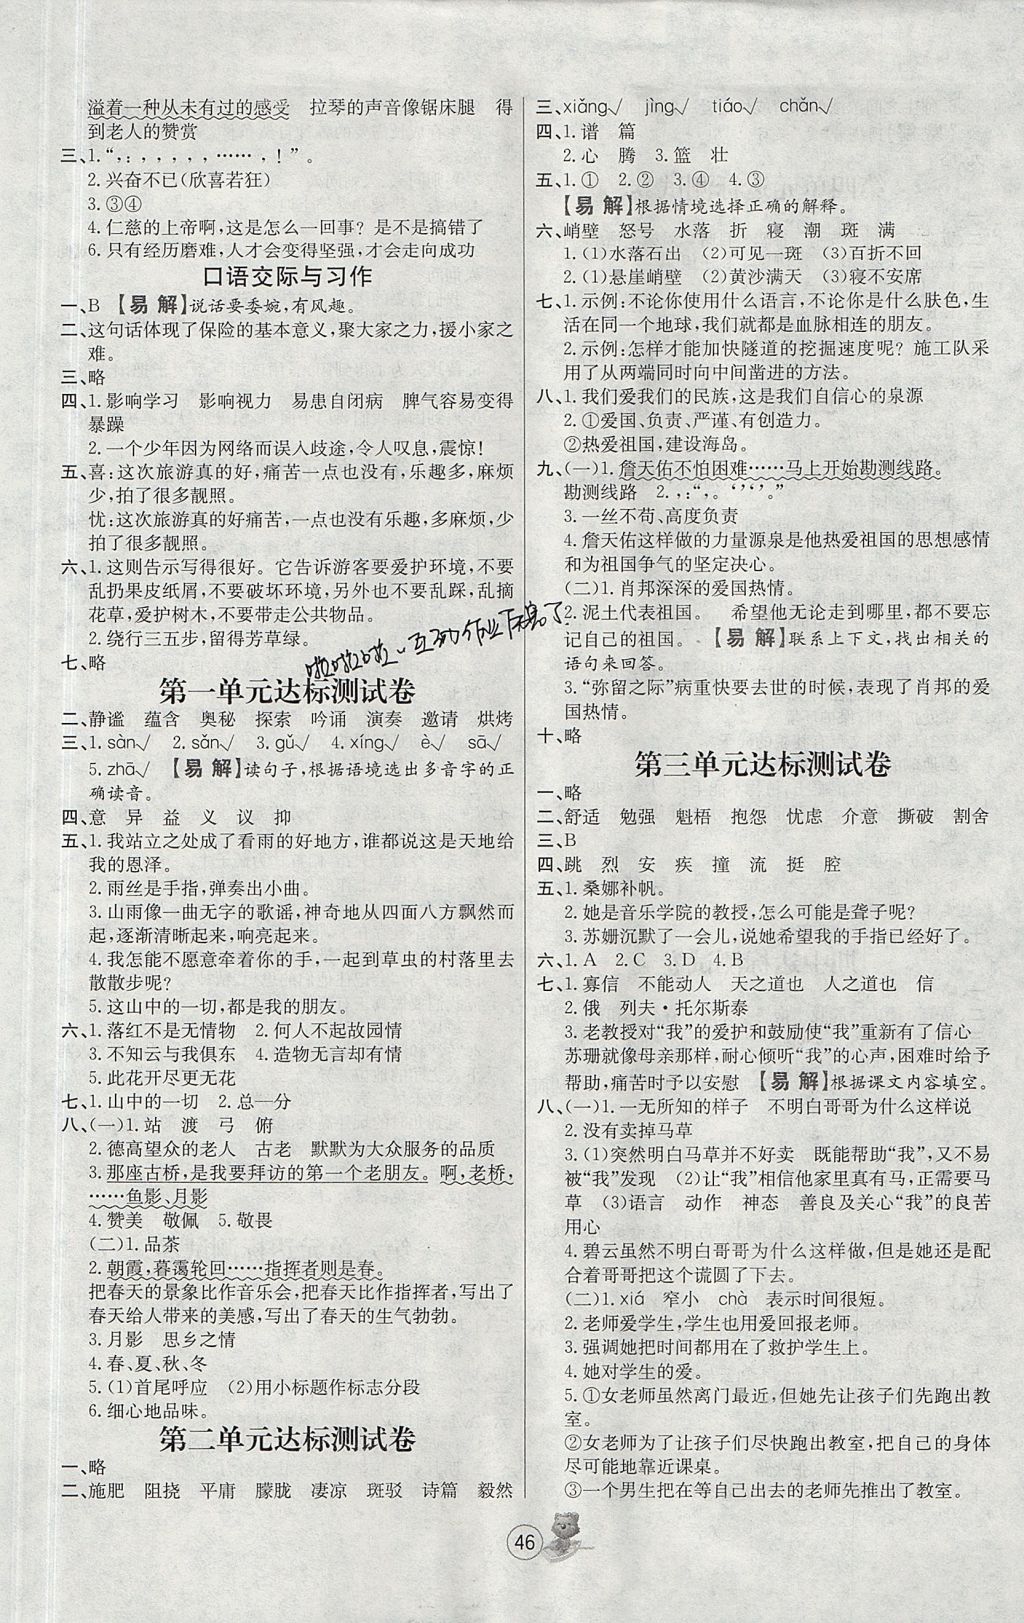 溢着一种从未有过的感受　拉琴的声音像锯床腿　得
到老人的赞赏
三、1.“，：，，，，，……，！”。
2.兴奋不已(欣喜若狂)
3.③④
4.仁慈的上帝啊，这是怎么一回事？是不是搞错了
6.只有经历磨难，人才会变得坚强，才会走向成功
口语交际与习作
一、B　【易解】说话要委婉，有风趣。
二、这句话体现了保险的基本意义，聚大家之力，援小家之
难。
三、略
四、1.影响学习　影响视力　易患自闭病　脾气容易变得
暴躁
2.一个少年因为网络而误入歧途，令人叹息，震惊！
五、喜：这次旅游真的好，痛苦一点也没有，乐趣多，麻烦
少，拍了很多靓照。
忧：这次旅游真的好痛苦，一点也没有乐趣，多麻烦，少
拍了很多靓照。
六、1.这则告示写得很好。它告诉游客要爱护环境，不要
乱扔果皮纸屑，不要破坏环境，另外也不要乱踩，乱摘
花草，爱护树木，不要带走公共物品。
2.绕行三五步，留得芳草绿。
七、略
啦啦啦、互动作业
第一单元达标测试卷
二、静谧　蕴含　奥秘　探索　吟诵　演奏　邀请　烘烤
三、1.sàn√　2.sǎn√　3.gǔ√　4.xíng√　è√　sā√
5.zhā√　【易解】读句子，根据语境选出多音字的正
确读音。
四、意　异　益　义　议　抑
五、1.我站立之处成了看雨的好地方，谁都说这是天地给
我的恩泽。
2.雨丝是手指，弹奏出小曲。
3.山雨像一曲无字的歌谣，神奇地从四面八方飘然而
起，逐渐清晰起来，响亮起来。
4.我怎能不愿意牵着你的手，一起到草虫的村落里去
散散步呢？
5.这山中的一切，都是我的朋友。
六、1.落红不是无情物　2.何人不起故园情
3.不知云与我俱东　4.造物无言却有情
5.此花开尽更无花
七、1.山中的一切　2.总—分
八、(一)1.站　渡　弓　俯
2.德高望众的老人　古老　默默为大众服务的品质
3.那座古桥，是我要拜访的第一个老朋友。啊，老桥，
……鱼影、月影
4.赞美　敬佩　5.敬畏
(二)1.品茶
2.朝霞，暮霭轮回……指挥者则是春。
把春天的景象比作音乐会，把春天比作指挥者，写出了
春天给人带来的美感，写出了春天的生气勃勃。
3.月影　思乡之情
4.春、夏、秋、冬
5.(1)首尾呼应　(2)用小标题作标志分段
6.细心地品味。
第二单元达标测试卷
一、略
二、施肥　阻挠　平庸　朦胧　凄凉　斑驳　诗篇　毅然
三、xiǎng√　jìng√　tiáo√　chǎn√
四、1.谱　篇
2.心　腾　3.篮　壮
五、1.①　2.②　3.④　4.③
【易解】根据情境选择正确的解释。
六、峭壁　怒号　水落　折　寝　潮　斑　满
1.(1)水落石出　(2)可见一斑　(3)百折不回
2.(1)悬崖峭壁　(2)黄沙满天　(3)寝不安席
七、1.示例：不论你使用什么语言，不论你是什么肤色，生
活在同一个地球，我们就都是血脉相连的朋友。
2.示例：怎样才能加快隧道的挖掘速度呢？施工队采
用了从两端同时向中间凿进的方法。
八、1.我们爱我们的民族，这是我们自信心的泉源
2.①爱国、负责、严谨、有创造力。
②热爱祖国，建设海岛。
九、(一)1.詹天佑不怕困难……马上开始勘测线路。
勘测线路　2.，：“，。‘’‘’。”
3.一丝不苟、高度负责
4.詹天佑这样做的力量源泉是他热爱祖国的思想感情
和为祖国争气的坚定决心。
(二)1.肖邦深深的爱国热情。
2.泥土代表祖国。　希望他无论走到哪里，都不要忘
记自己的祖国。　【易解】联系上下文，找出相关的
语句来回答。
3.“弥留之际”病重快要去世的时候，表现了肖邦的爱
国热情。
十、略
第三单元达标测试卷
一、略
二、舒适　勉强　魁梧　抱怨　忧虑　介意　撕破　割舍
三、B
四、跳　烈　安　疾　撞　流　挺　腔
五、1.桑娜补帆。
2.她是音乐学院的教授，怎么可能是聋子呢？
3.苏姗沉默了一会儿，说她希望我的手指已经好了。
六、1.A　2.C　3.D　4.B
七、1.寡信　不能动人　天之道也　人之道也　信
2.俄　列夫·托尔斯泰
3.老教授对“我”的爱护和鼓励使“我”重新有了信心
苏珊就像母亲那样，耐心倾听“我”的心声，困难时给予
帮助，痛苦时予以安慰　【易解】根据课文内容填空。
八、(一)1.一无所知的样子　不明白哥哥为什么这样说
2.没有卖掉马草
3.(1)突然明白马草并不好卖　既能帮助“我”，又不易
被“我”发现　(2)让“我”相信他家里真有马，正需要马
草　(3)语言　动作　神态　善良及关心“我”的良苦
用心
4.碧云虽然不明白哥哥为什么这样做，但是还是配合
着哥哥把这个谎圆了下去。
(二)1.xiá　窄小　chà　表示时间很短。
2.老师爱学生，学生也用爱回报老师。
3.强调她把时间都用在了救护学生上。
4.她对学生的爱。
5.①女老师虽然离门最近，但她先让孩子们先跑出教
室。
②女老师为了让孩子们尽快跑出教室，把自己的身体
尽可能地靠近课桌。
③一个男生把在等自己出去的老师先推出了教室。
46